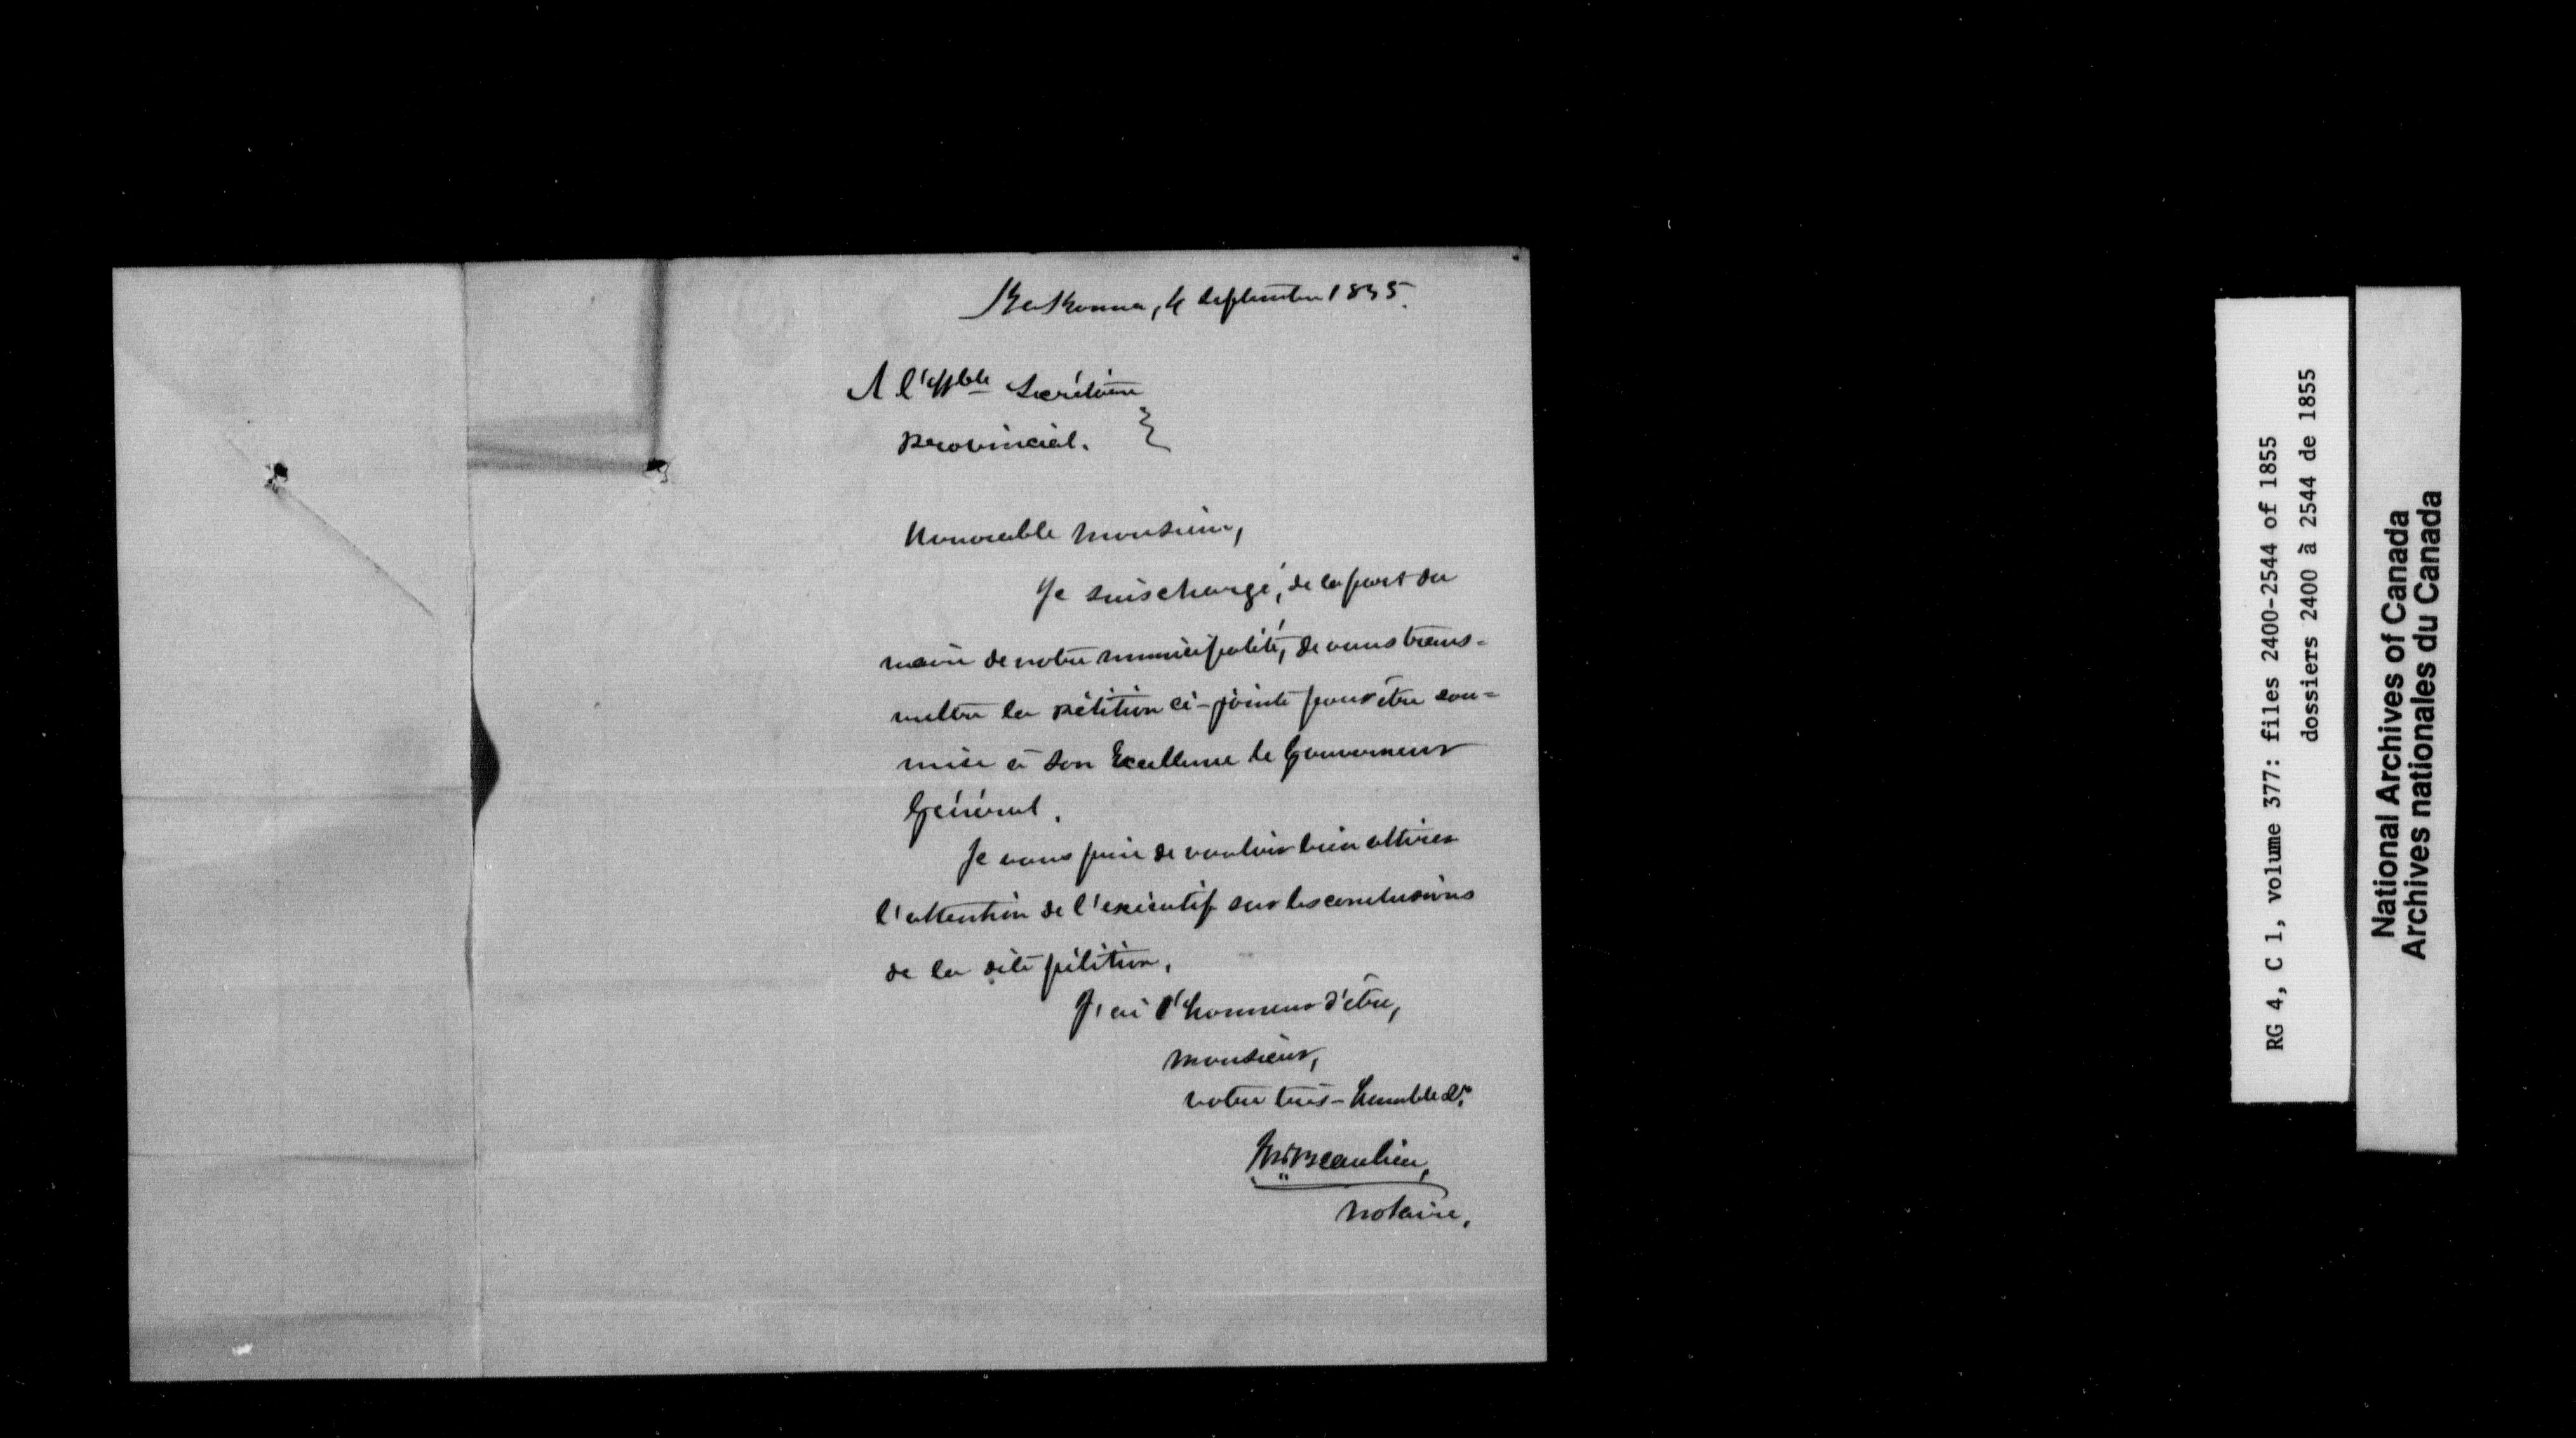 Kakouna, 4 Septembre 1855.
A l'Hble Secrétaire
Provincial.
Honorable Monsieur,
Je suis chargé, de la part du
maire de notre municipalité, de vous trans=
mettre la pétition ci-jointe pour être sou=
mise à Son Excellence le Gouverneur
Général.
Je vous prie de vouloir bien attirer
l'attention de l'exécutif sur les conclusions
de la dite pétition.
J'ai l'honneur d'être,
Monsieur,
votre très-humble Sr.
Beaulieu,
Notaire.
RG 4, C 1, volume 377: files 2400-2544 of 1855
dossiers 2400 à 2544 de 1855
National Archives of Canada
Archives nationales du Canada